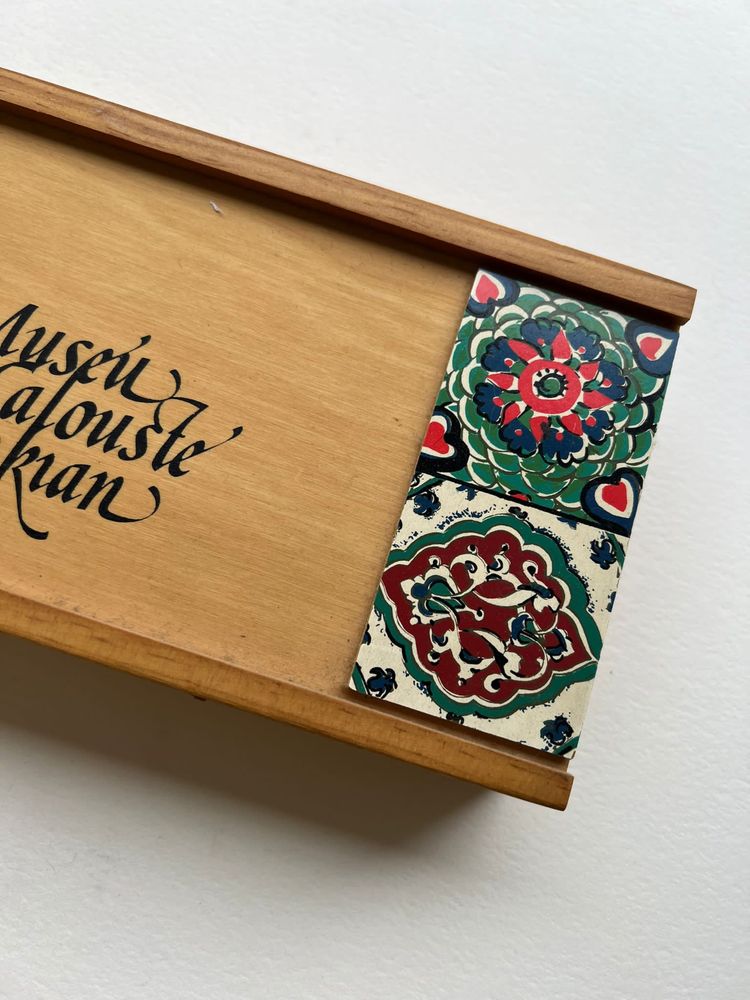 Museu
alouste
kian